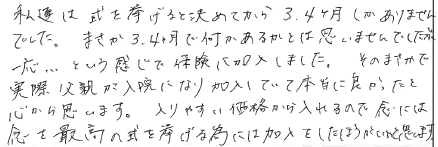 私達は式を挙げると決めてから3.4ヶ月しかありません
でした。まさか3.4ヶ月で何かあるかとは思いませんでしたが
一応…という感じで保険に加入しました。そのまさかで
実際父親が入院になり加入していて本当に良かったと
心から思います。入りやすい価格から入れるので念には
念を最高の式を挙げる為には加入をしたほうがいいかと思います